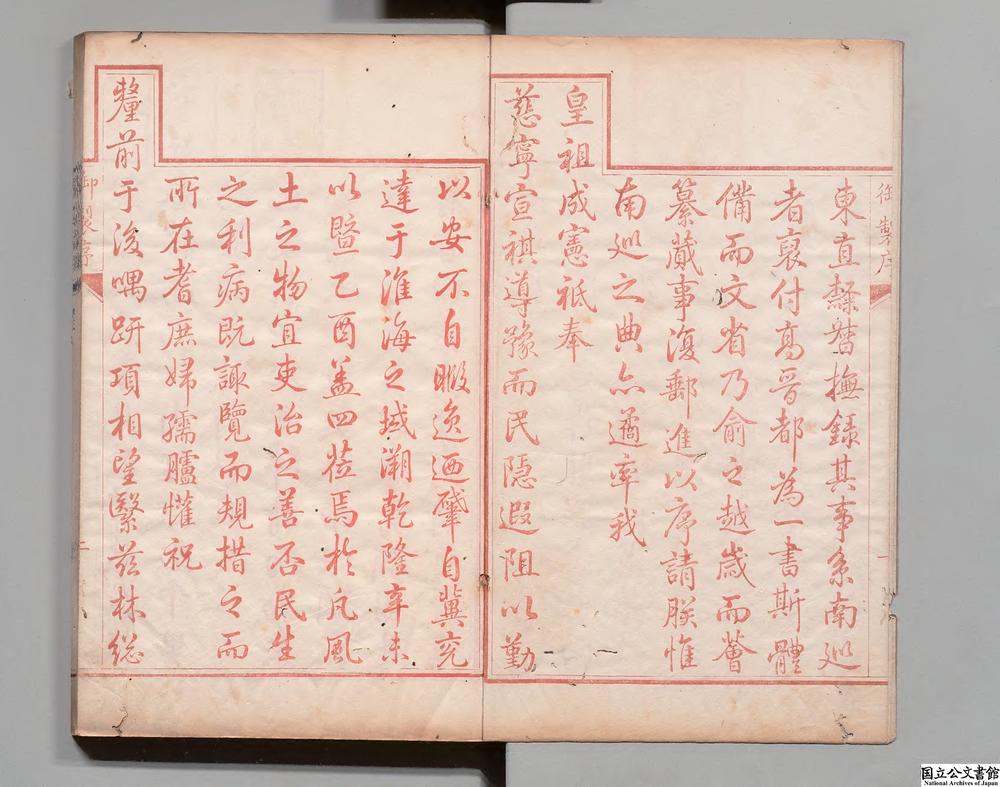 御製序
一
東直隸督撫録其事系南巡
者裒付高晉都為一書斯體
備而文省乃俞之越歲而薈
纂蕆事復郵進以序請朕惟
南巡之典亦遹率我
皇祖成憲祇奉
慈寧宣祺導豫而民隱遐阻以勤
以安不自暇逸迺肇自冀兗
達于淮海之域溯乾隆辛未
以暨乙酉蓋四莅焉於凡風
土之物宜吏治之善否民生
之利病既諏覽而規措之而
所在耆庶婦孺臚懽祝
釐前于後喁趼項相望繄茲林總
御製序
二
国立公文書館
National Archives of Japan